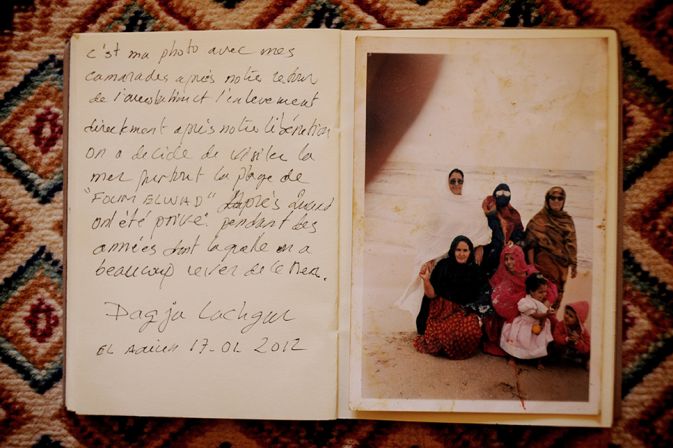 c'est ma photo avec mes
camarades après notre retour
de l'arrestation et l'enlevement
directement après notre libération
on a decidé de visiter la
mer surtout la plage de
"FOUM ELWAD" Après
ont été privé pendant des
années dont laquelle on a
beaucoup rever de la Mer.
Dagja Lachgar
EL Aaiun 17-01 2012